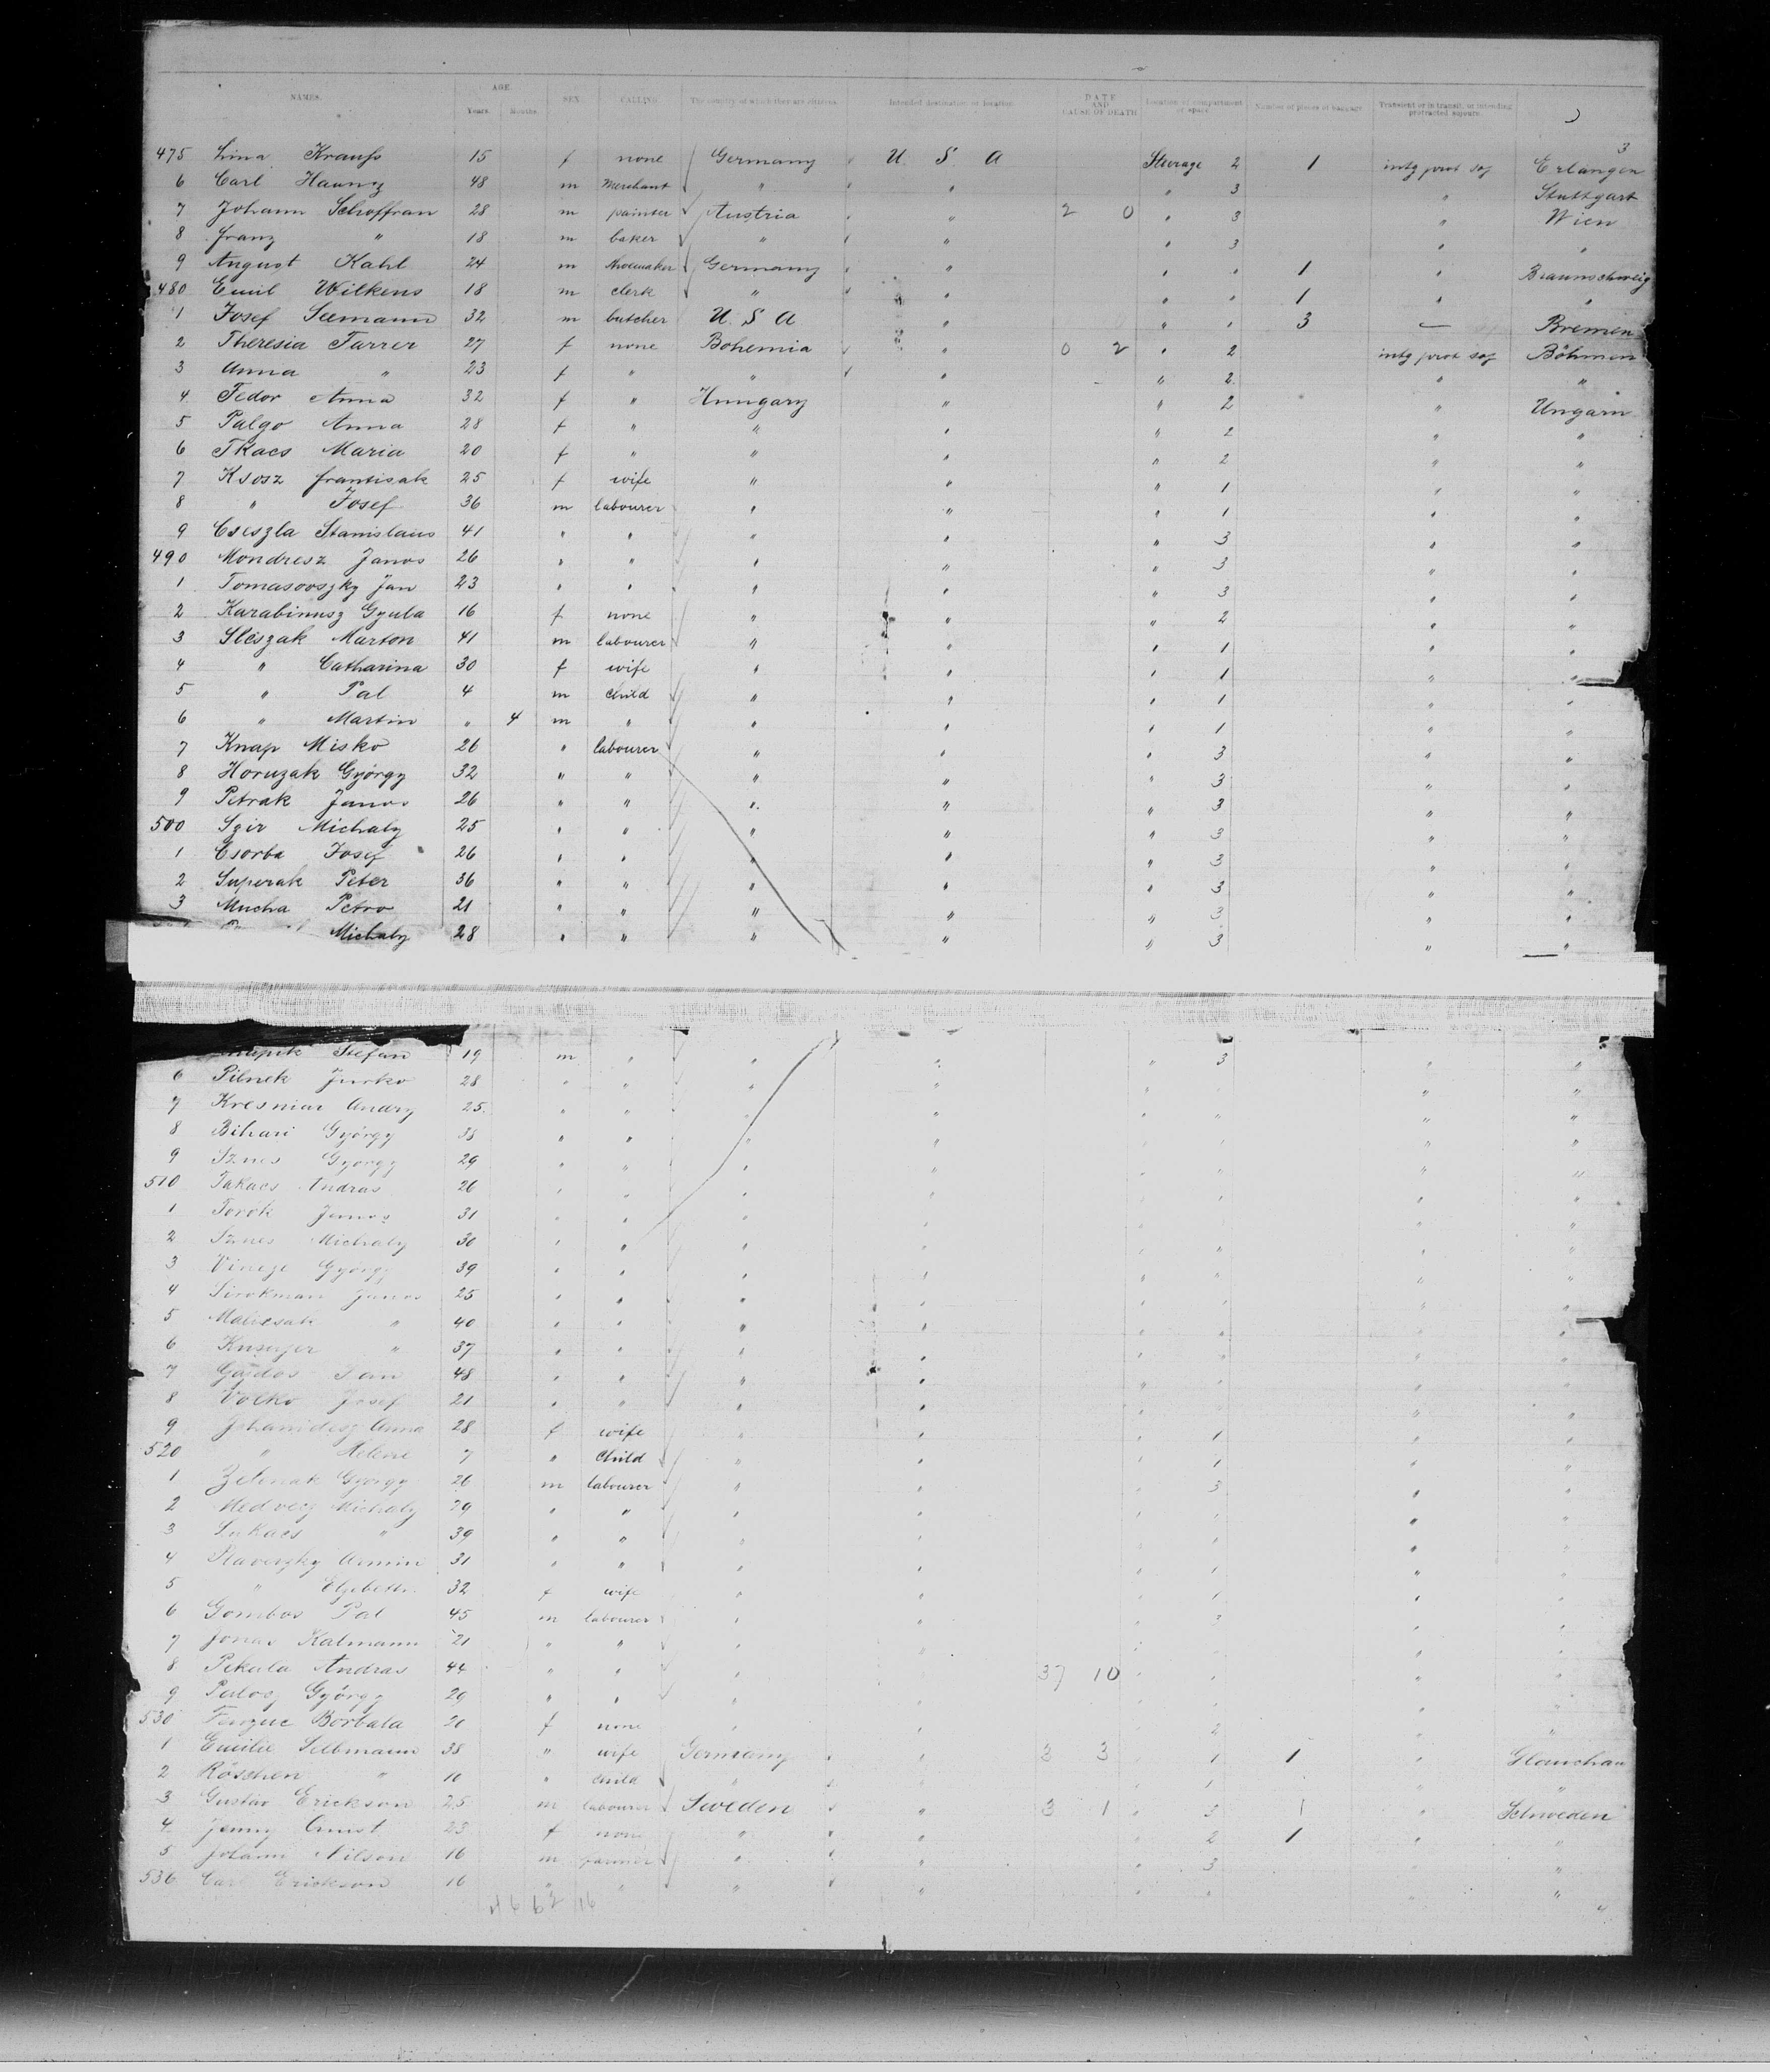 NAMES. AGE. Years. Months. SEX. CALLING. The country of which they are citizens. Intended destination or location. DATE AND CAUSE OF DEATH Location of compartment or space Number of pieces of baggage Transient or in transit, or intending protracted sojourn.
3
475 Lina Krauss 15 f none Germany U. S. A Steerage 2 1 intg prot soj Erlangen
6 Carl 48 m Merchant " " " 3 " Stuttgart
7 Johann Schoffran 28 m painter Austria " 2 0 " 3 " Wien
8 Franz " 18 m baker " " " 3 " "
9 August Kahl 24 m shoemaker Germany " " " 1 " Braunschweig
480 Emil Wilkens 18 m clerk " " " " 1 " "
1 Josef Seemann 32 m butcher U. S. A " " " 3 — Bremen
2 Theresia Farrer 27 f none Bohemia " 0 2 " 2 intg prot soj Böhmen
3 Anna " 23 f " " " " 2 " "
4 Fedor Anna 32 f " Hungary " " 2 " Ungarn
5 Palgo Anna 28 f " " " " 2 " "
6 Tkacs Maria 20 f " " " " 2 " "
7 Ksosz Frantisak 25 f wife " " " 1 " "
8 " Josef 36 m labourer " " " 1 " "
9 Cseszla Stanislaus 41 " " " " " 3 " "
490 Mondresz Janos 26 " " " " " 3 " "
1 Tomasovszky Jan 23 " " " " " 3 " "
2 Karabinusz Gyula 16 f none " " " 2 " "
3 Sleszak Marton 41 m labourer " " " 1 " "
4 " Catharina 30 f wife " " " 1 " "
5 " Pal 4 m child " " " 1 " "
6 " Martin " 4 m " " " " 1 " "
7 Knap Misko 26 " labourer " " " 3 " "
8 Horuzak György 32 " " " " " 3 " "
9 Petrak Janos 26 " " " " " 3 " "
500 Szir Michaly 25 " " " " " 3 " "
1 Csorba Josef 26 " " " " " 3 " "
2 Superak Peter 36 " " " " " 3 " "
3 Mucha Petro 21 " " " " " 3 " "
Michaly 28 " " " " " 3 " "
Stefan 19 m " " " " 3 " "
6 Pilnek Jurko 28 " " " " " " "
7 Kresniar Andry 25 " " " " " " " "
8 Bihari György 38 " " " " " " " "
9 Sznes György 29 " " " " " " " "
510 Takacs Andras 26 " " " " " " " "
1 Torok Janos 31 " " " " " " " "
2 Sznes Michaly 30 " " " " " " " "
3 György 39 " " " " " " " "
4 Sirokman Janos 25 " " " " " " " "
5 " 40 " " " " " " " "
6 " 37 " " " " " " " "
7 Gajdos Jan 48 " " " " " " " "
8 Volko Josef 21 " " " " " " " "
9 Johanidesz Anna 28 f wife " " " 1 " "
520 " Helene 7 " Child " " " 1 " "
1 Zelenak György 26 m labourer " " " 3 " "
2 Medvecz Michaly 29 " " " " " " " "
3 Lukacs " 39 " " " " " " " "
4 Armin 31 " " " " " 1 " "
5 " 32 f wife " " " 1 " "
6 Gombos Pal 45 m labourer " " " 3 " "
7 Jonas Kalmann 21 " " " " " " " "
8 Pekala Andras 44 " " " " 37 10 " " " "
9 Palosz György 29 " " " " " " " "
530 Borbala 20 f none " " " 2 " "
1 Emilie Selbmann 38 " wife Germany " 3 3 " 1 1 " Glauchau
2 Röschen " 10 " child " " " 1 " "
3 Gustav Erickson 25 m labourer Sweden " 3 1 " 3 1 " Schweden
4 Jenny 23 f none " " " 2 1 " "
5 Johann Nilson 16 m farmer " " " 3 " "
536 Carl Erickson 16 " " " " " " " "